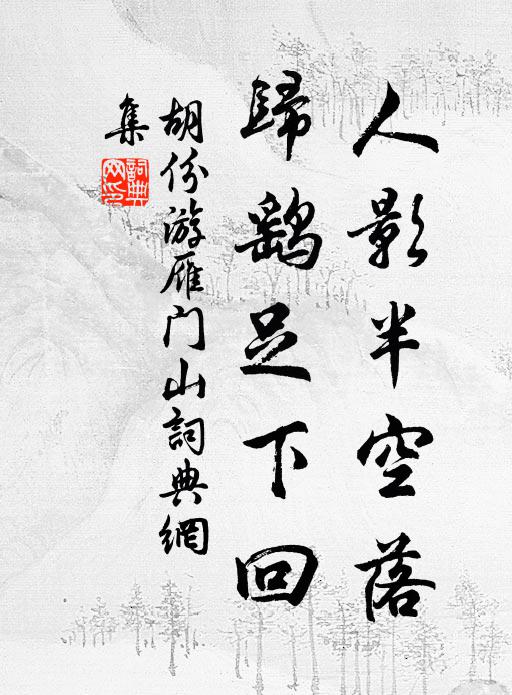 人影半空落
歸鷂足下回
胡份游雁门山詞典網
集
詞典网印